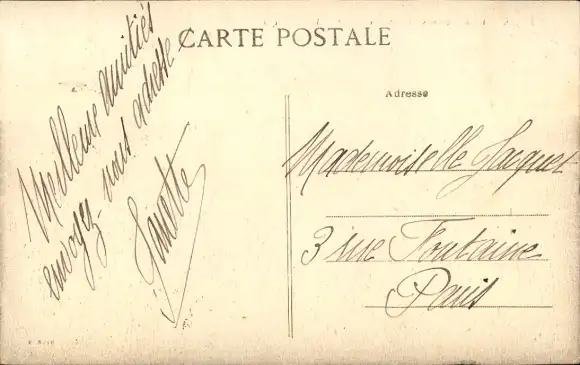 CARTE POSTALE
Meilleure amitiés
envoyez nous adresse
Ginette
Adresse
Mademoiselle Jacquet
3 rue Fontaine
Paris